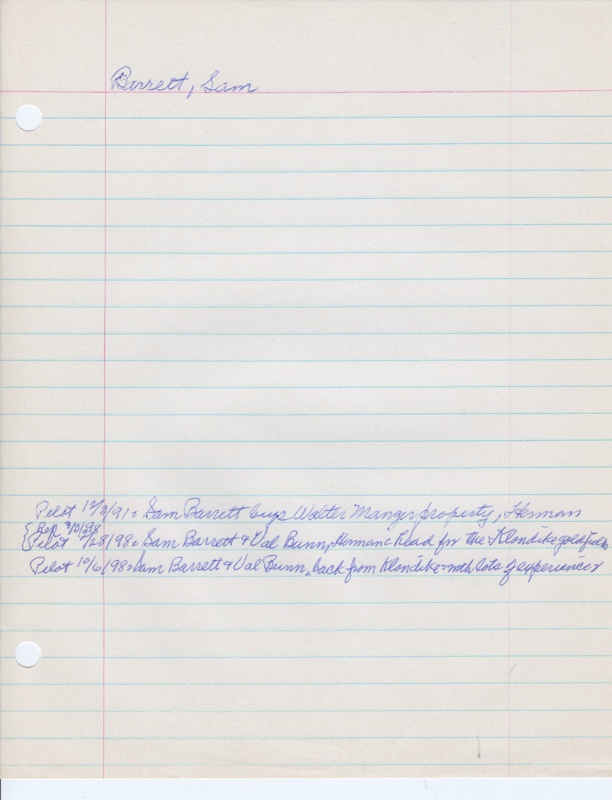 Barrett, Sam
Pilot 12/3/91: Sam Barrett buys Walter Manger property, Herman
{Rep 3/3/98
Pilot 2/28/98: Sam Barrett & Val Bunn, Herman: head for the Klondike goldfields
Pilot 10/6/98: Sam Barrett & Val Bunn, back from Klondike with lots of experience